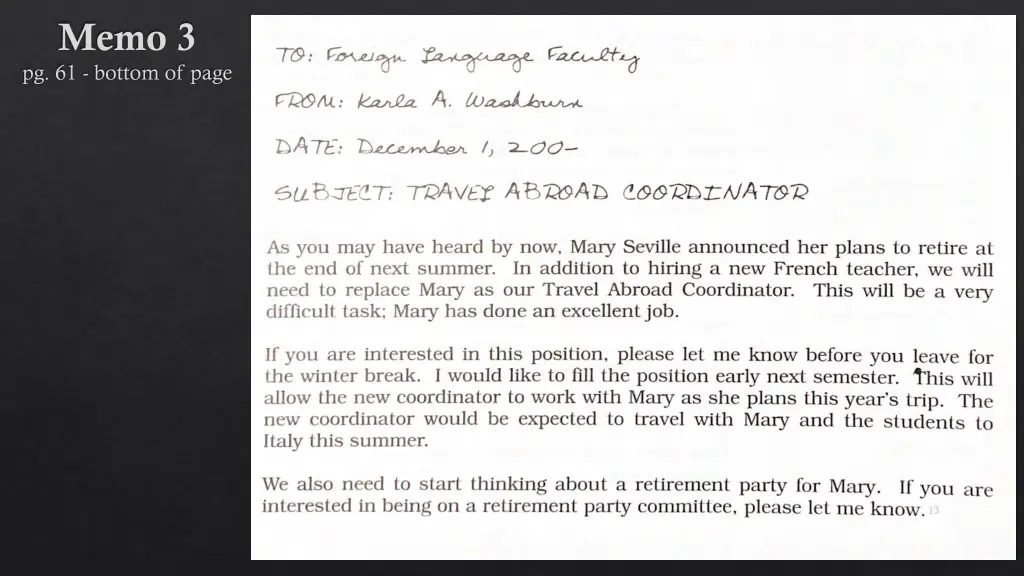 Memo 3
pg. 61 - bottom of page
TO: Foreign Language Faculty
FROM: Karla A. Washburn
DATE: December 1, 200-
SUBJECT: TRAVEL ABROAD COORDINATOR
As you may have heard by now, Mary Seville announced her plans to retire at
the end of next summer. In addition to hiring a new French teacher, we will
need to replace Mary as our Travel Abroad Coordinator. This will be a very
difficult task; Mary has done an excellent job.
If you are interested in this position, please let me know before you leave for
the winter break. I would like to fill the position early next semester. This will
allow the new coordinator to work with Mary as she plans this year's trip. The
new coordinator would be expected to travel with Mary and the students to
Italy this summer.
We also need to start thinking about a retirement party for Mary. If you are
interested in being on a retirement party committee, please let me know.
13